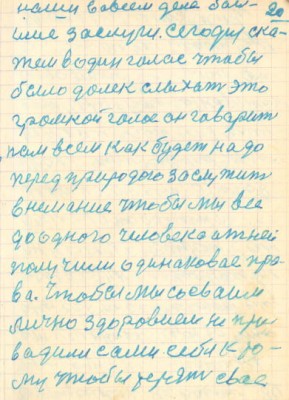 20
наши в авсем дела бай-
шие заслуги. Сегодня ска-
жем в один голас чтобы
было далек слыхат это
громкой голас он гаварит
нам всем как будет надо
перед природою заслужит
внемание чтобы мы все
до одного человека от ней
получили одинаковае пра-
ва. Чтобы мы соеваим
лично здоровием не при
вадили сами себя к то-
му чтобы терят свае